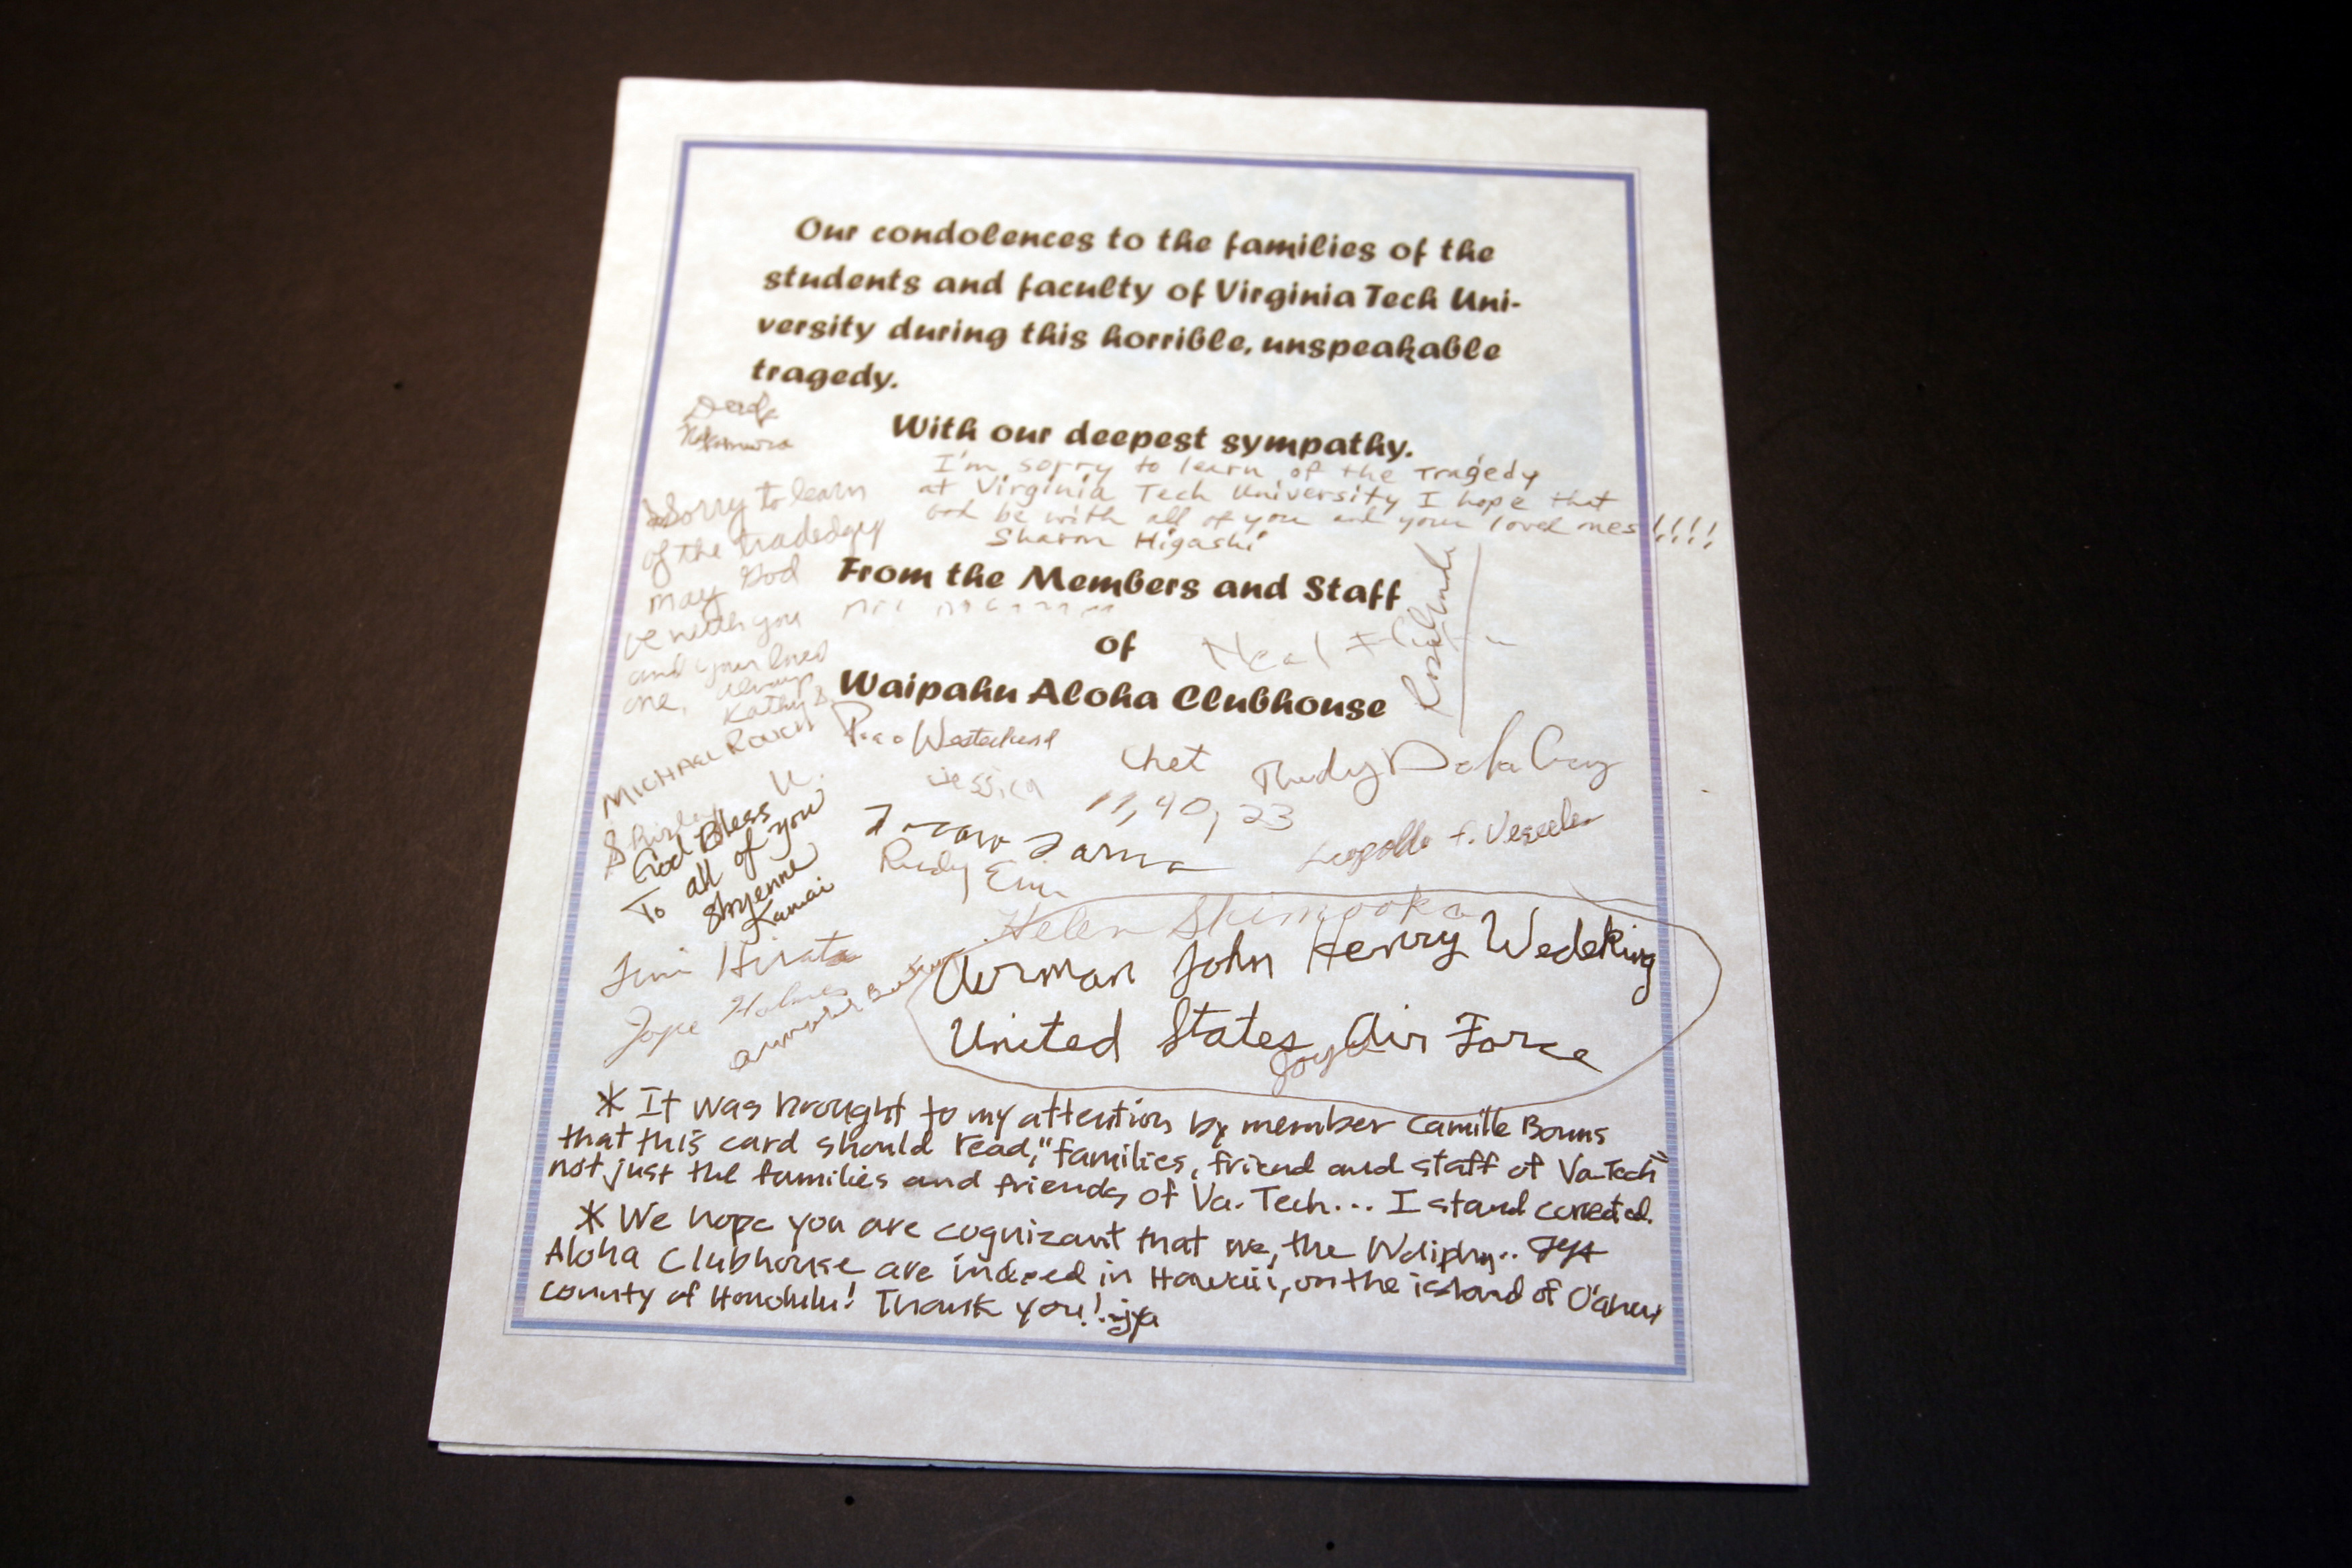 Our condolences to the families of the
students and faculty of Virginia Tech Uni-
versity during this horrible, unspeakable
tragedy.
With our deepest sympathy.
I'm sorry to learn of the Tragedy
at Virginia Tech University I hope that
God be with all of you and your loved ones!!!!!
Sharon Higashi
Sorry to learn
of the tradedgy
may God
be with you
and your loved
one, always
Kathy S.
From the Members and Staff
of
Waipahu Aloha Clubhouse
Neal
MICHAEL ROUCH
Chet
Jessica
11, 40, 23
Shirley U.
God Bless
To all of you
Shyenne
Kamai
Rudy
Helen Shimooka
Airman John Henry Wedeking
United States Air Force
Joyce
Hirata
Joyce Holmes
* It was brought to my attention by member Camille Bouns
that this card should read, "families, friend and staff of Va-Tech"
not just the families and friends of Va. Tech... I stand corrected.
* We hope you are cognizant that we, the
Aloha Clubhouse are indeed in Hawaii, on the island of O'ahu,
county of Honolulu! Thank you! -jya